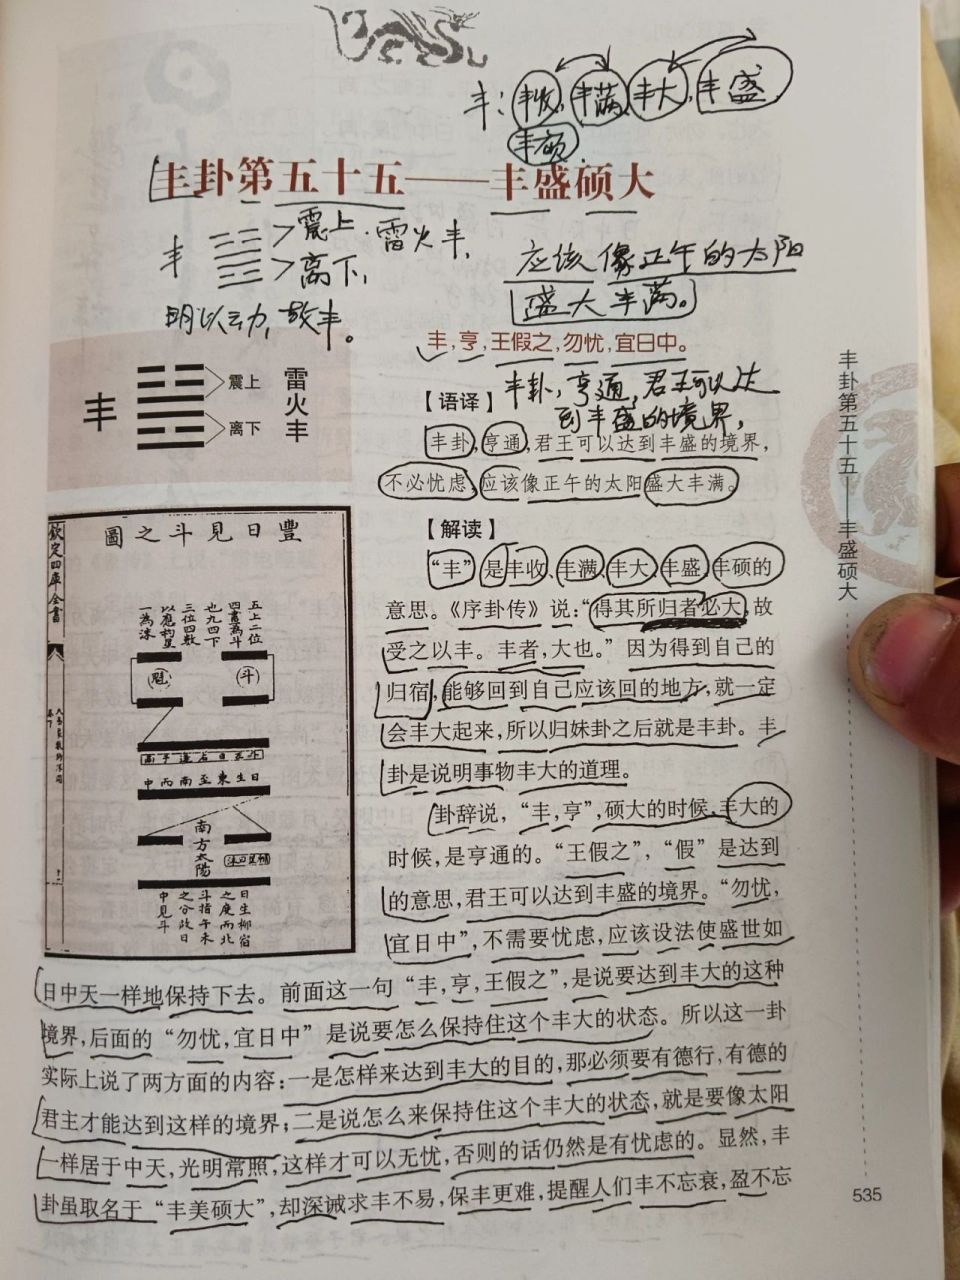 丰：丰收，丰满，丰大，丰盛
丰硕，
丰卦第五十五——丰盛硕大
丰 震上·雷火丰，
离下，
明以动，故丰。
应该像正午的太阳
盛大丰满。
丰，亨，王假之，勿忧，宜日中。
丰卦，亨通，君王可以达
到丰盛的境界，
丰
震上
离下
雷
火
丰
【语译】
丰卦，亨通，君王可以达到丰盛的境界，
不必忧虑，应该像正午的太阳盛大丰满。
【解读】
“丰”是丰收、丰满、丰大、丰盛、丰硕的
意思。《序卦传》说：“得其所归者必大，故
受之以丰。丰者，大也。”因为得到自己的
归宿，能够回到自己应该回的地方，就一定
会丰大起来，所以归妹卦之后就是丰卦。丰
卦是说明事物丰大的道理。
卦辞说，“丰，亨”，硕大的时候，丰大的
时候，是亨通的。“王假之”，“假”是达到
的意思，君王可以达到丰盛的境界。“勿忧，
宜日中”，不需要忧虑，应该设法使盛世如
日中天一样地保持下去。前面这一句“丰，亨，王假之”，是说要达到丰大的这种
境界，后面的“勿忧，宜日中”是说要怎么保持住这个丰大的状态。所以这一卦
实际上说了两方面的内容：一是怎样来达到丰大的目的，那必须要有德行，有德的
君主才能达到这样的境界；二是说怎么来保持住这个丰大的状态，就是要像太阳
一样居于中天，光明常照，这样才可以无忧，否则的话仍然是有忧虑的。显然，丰
卦虽取名于“丰美硕大”，却深诫求丰不易，保丰更难，提醒人们丰不忘衰，盈不忘
圖之斗見日豐
欽定四庫全書
五上二位
四畫為斗
也九四下
三位四數
以應杓星
一為沬
魁
斗
中西南至東生日
南方太陽
日生柳宿
之度而北
斗指午未
之分故日
中見斗
丰卦第五十五——丰盛硕大
535